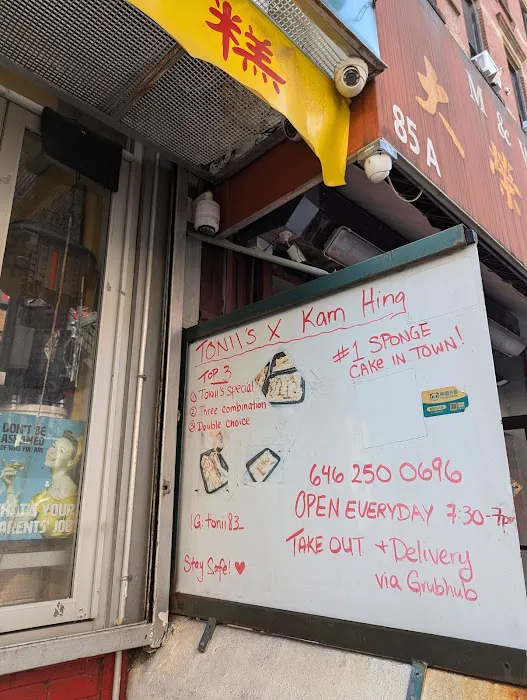 糕
85 A
M &
大
榮
TONII'S X Kam Hing
#1 SPONGE
CAKE IN TOWN!
TOP 3
① Tonii's Special
② Three combination
③ Double choice
646 250 0696
OPEN EVERYDAY 7:30-7pm
IG: tonii82
TAKE OUT + Delivery
via Grubhub
Stay Safe! ♥
DON'T BE
ASHAMED
OF WHO YOU ARE
THAT'S YOUR
PARENTS' JOB